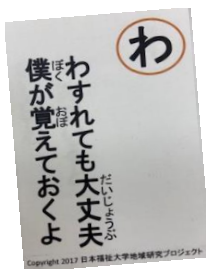 わ
わすれても大丈夫
だいじょうぶ
僕が覚えておくよ
ぼく
おぼ
Copyright 2017 日本福祉大学地域研究プロジェクト